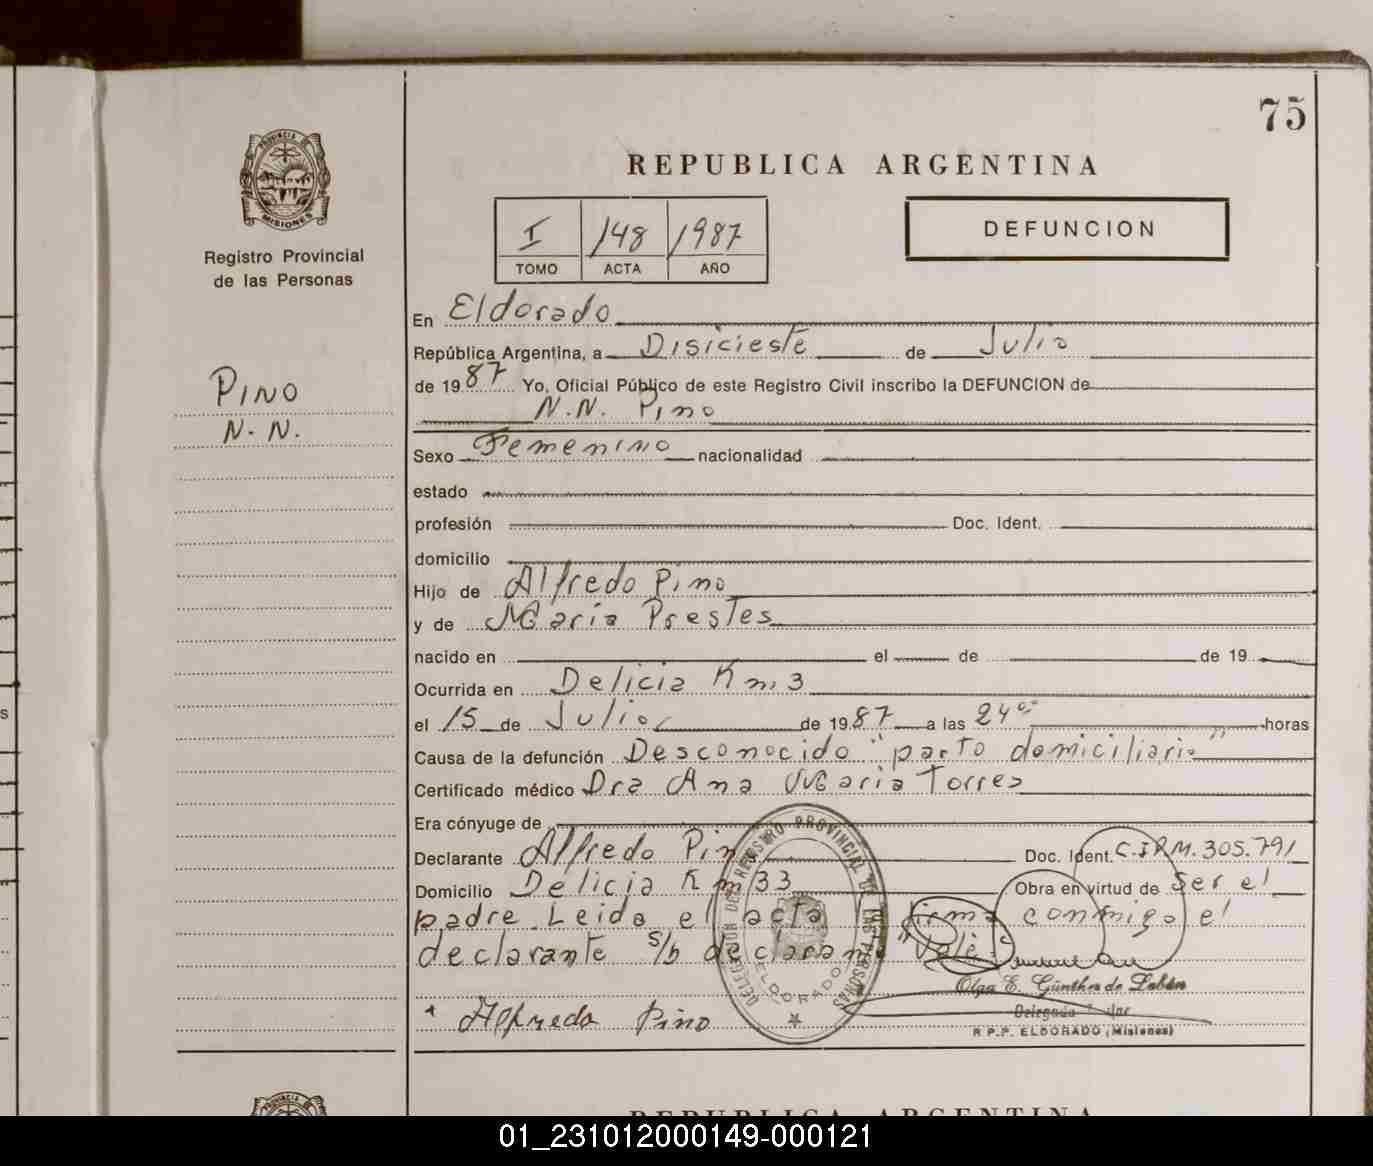 75
REPUBLICA ARGENTINA
PROVINCIA DE
MISIONES
Registro Provincial
de las Personas
I 148 1987
TOMO ACTA AÑO
DEFUNCION
PINO
N. N.
En Eldorado
República Argentina, a Disicieste de Julio
de 1987 Yo, Oficial Público de este Registro Civil inscribo la DEFUNCION de
N.N. Pino
Sexo Femenino nacionalidad
estado
profesión Doc. Ident.
domicilio
Hijo de Alfredo Pino
y de María Prestes
nacido en el de de 19
Ocurrida en Delicia Km 3
el 15 de Julio de 1987 a las 24 horas
Causa de la defunción Desconocido "parto domiciliario"
Certificado médico Dra Ana Maria Torres
Era cónyuge de
Declarante Alfredo Pino Doc. Ident. C.I.P.M. 305.791
Domicilio Delicia Km 33 Obra en virtud de Ser el
padre Leida el acta firma conmigo el
declarante s/b declarante "Vale"
Alfredo Pino
DELEGACION DEL REGISTRO PROVINCIAL DE LAS PERSONAS
ELDORADO
Olga E. Günther de
Delegada
R.P.P. ELDORADO (Misiones)
PROVINCIA DE
REPUBLICA ARGENTINA
01_231012000149-000121